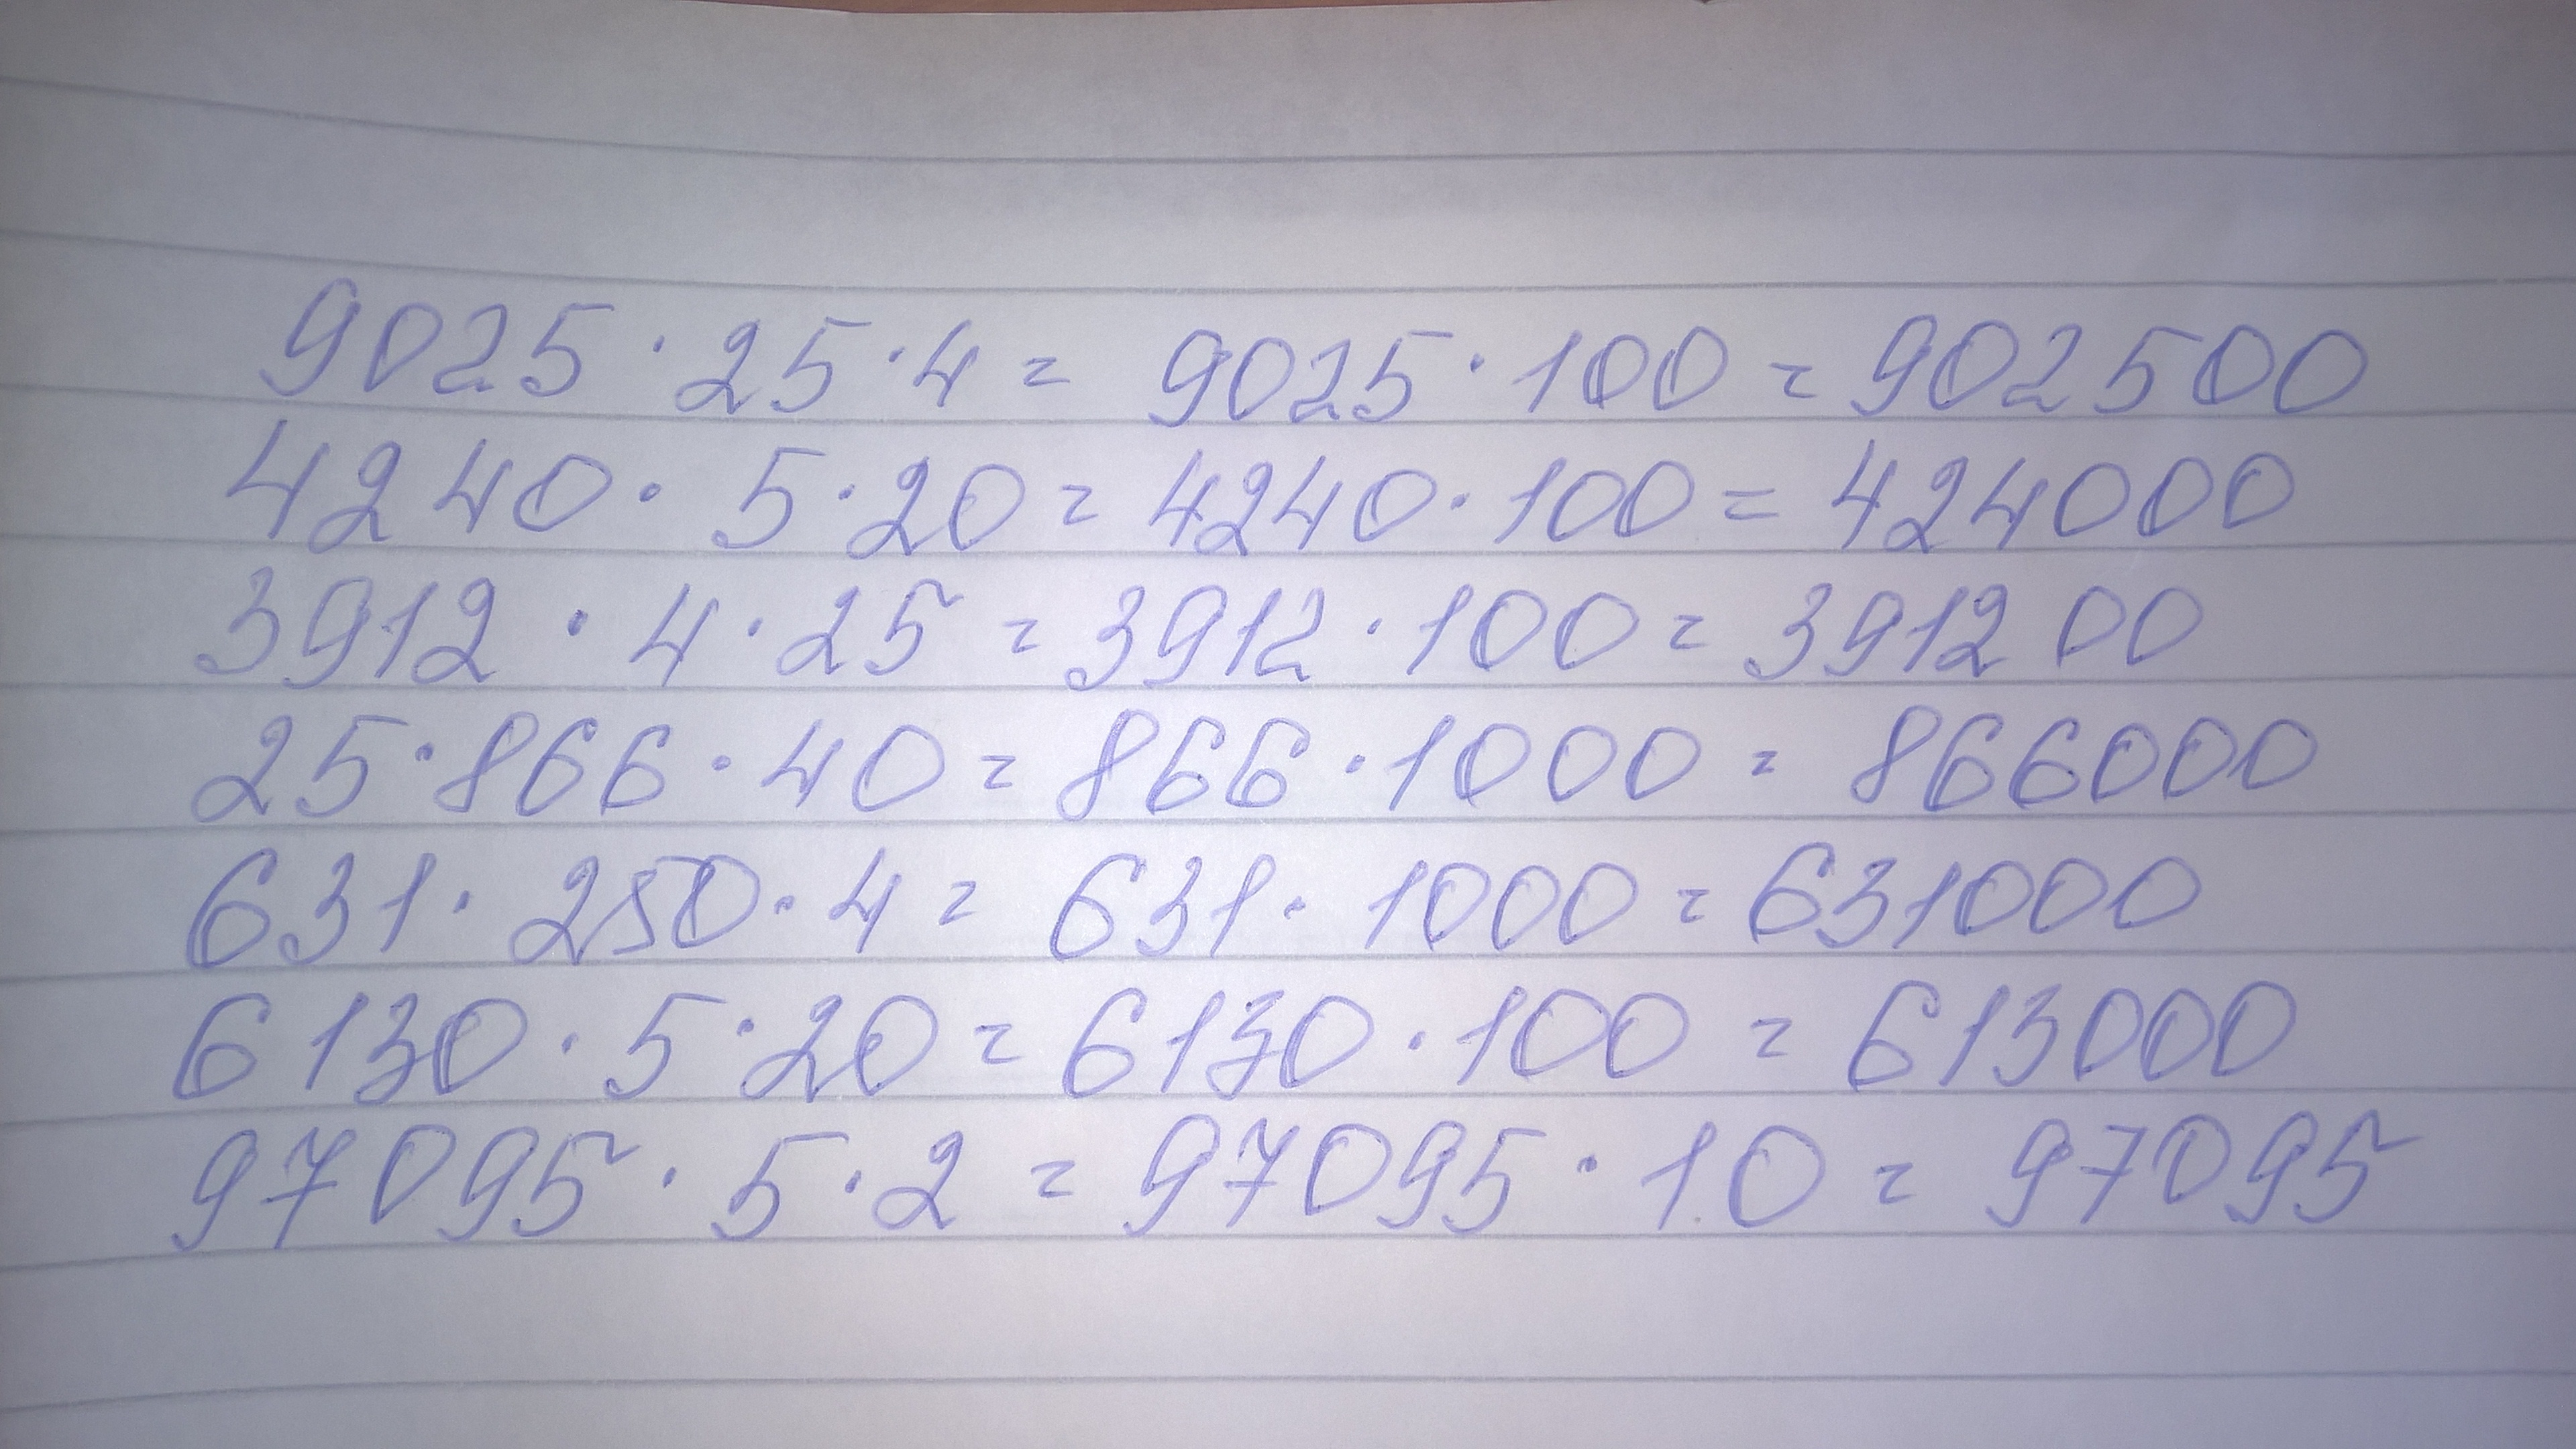 9025 · 25 · 4 = 9025 · 100 = 902500
4240 · 5 · 20 = 4240 · 100 = 424000
3912 · 4 · 25 = 3912 · 100 = 391200
25 · 866 · 40 = 866 · 1000 = 866000
631 · 250 · 4 = 631 · 1000 = 631000
6130 · 5 · 20 = 6130 · 100 = 613000
97095 · 5 · 2 = 97095 · 10 = 97095